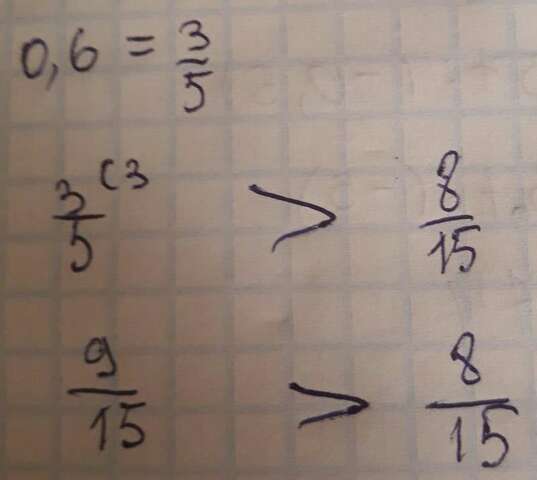 0,6 = 3/5
3/5 (3 > 8/15
9/15 > 8/15